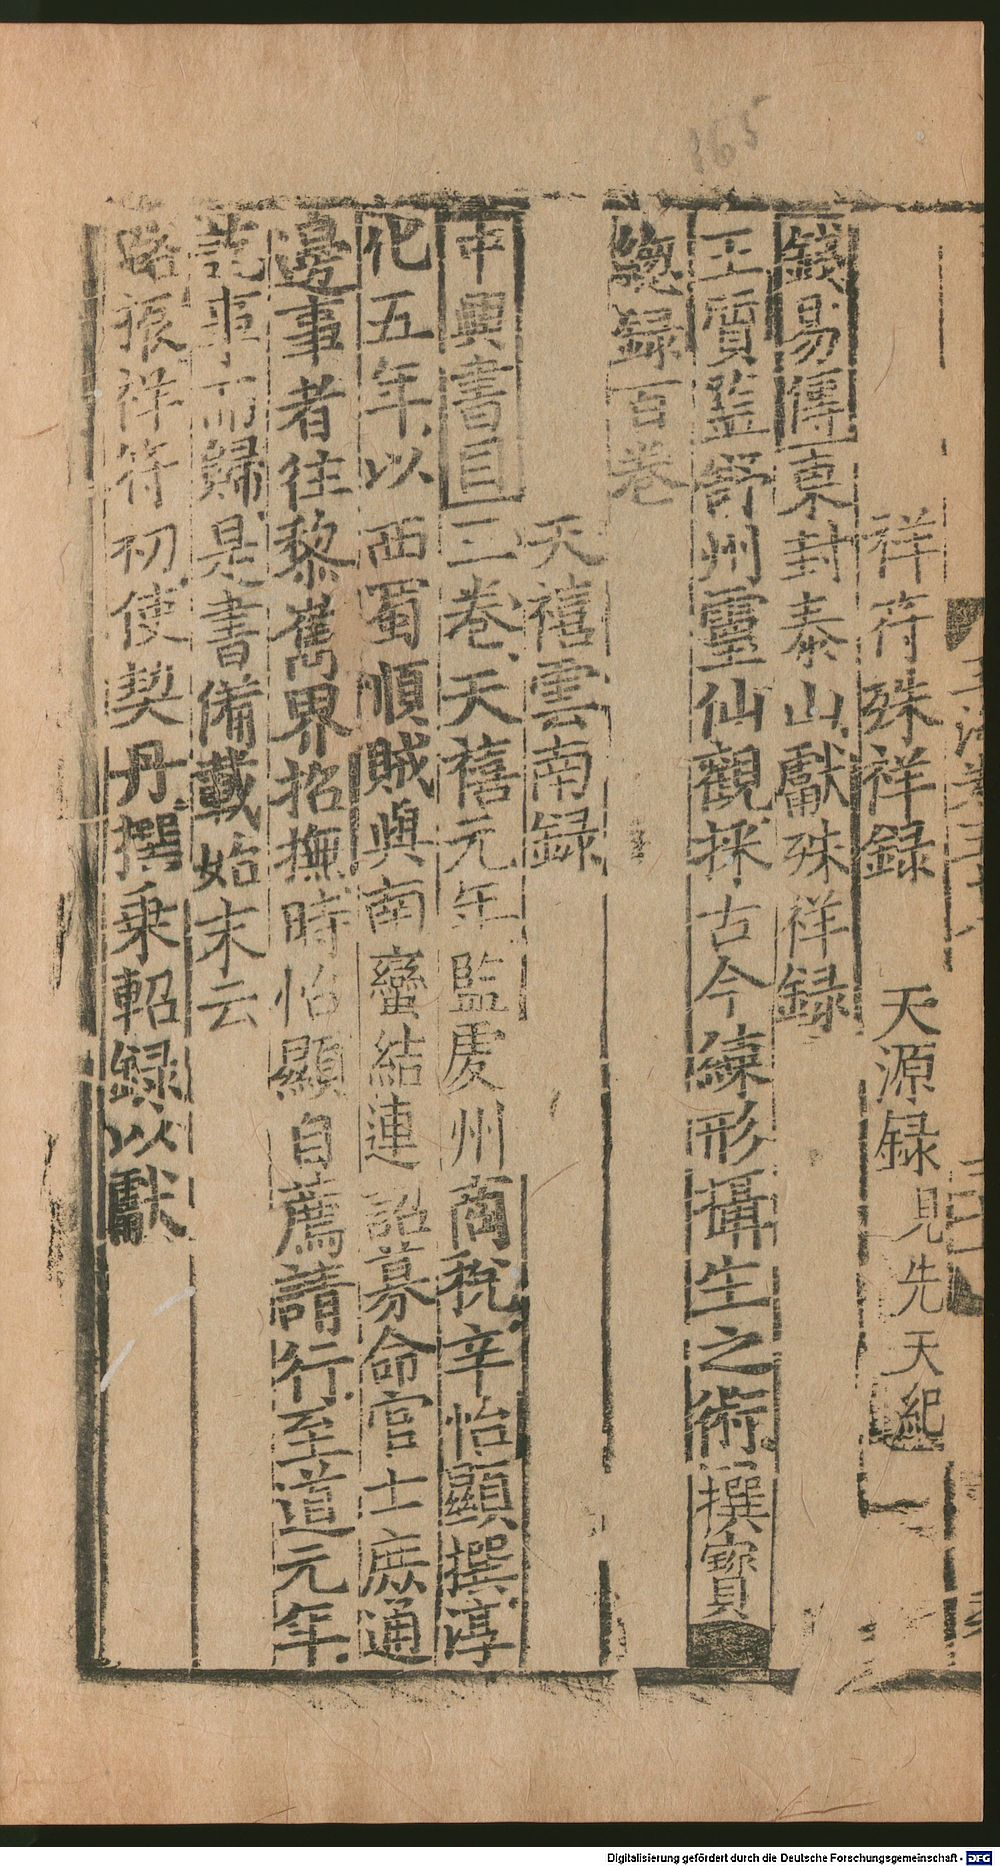 165
祥符殊祥録　天源録見先天紀
錢易傳東封泰山獻殊祥録
王質監舒州靈仙觀採古今錬形攝生之術撰寶
總録百卷
天禧雲南録
中興書目三卷天禧元年監處州商稅辛怡顯撰淳
化五年以西蜀順賊與南蠻結連詔募命官士庶通
邊事者往黎嶲界招撫時怡顯自薦請行至道元年
訖事而歸是書備載始末云
路振祥符初使契丹撰乗軺録以獻
Digitalisierung gefördert durch die Deutsche Forschungsgemeinschaft - DFG